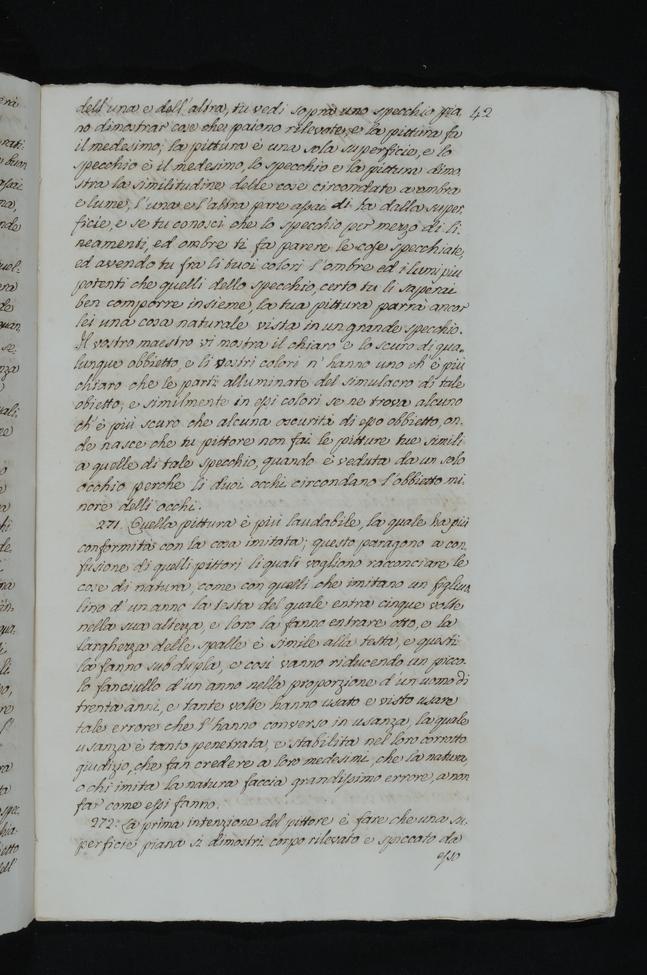 dell'una e dell'altra, tu vedi sopra uno specchio pia 42
no dimostrar cose che paiono rilevate, e la pittura fa
il medesimo; la pittura è una sola superficie, e lo
specchio è il medesimo, lo specchio e la pittura dimo,
stra la similitudine delle cose circondate a ombra
e lume, l'una e l'altra pare assai di là dalla super,
ficie, e se tu conosci che lo specchio per mezzo di li
neamenti, ed ombre ti fa parere le cose specchiate,
ed avendo tu fra li tuoi colori l'ombre ed i lumi piu
potenti che quelli dello specchio, certo tu li saperai
ben comporre insieme, la tua pittura parrà ancor
lei una cosa naturale vista in un grande specchio.
Il vostro maestro vi mostra il chiaro e lo scuro di qua,
lunque obbietto, e li vostri colori n'hanno uno ch'è più
chiaro che le parti alluminate del simulacro di tale
obietto, e similmente in essi colori se ne trova alcuno
ch'è più scuro che alcuna oscurità di esso obbietto, on,
de nasce che tu pittore non fai le pitture tue simili
a quelle di tale specchio, quando è veduta da un solo
occhio perche li duoi occhi circondano l'obbietto mi
nore delli occhi.
271. Quella pittura è più laudabile, la quale ha più
conformità con la cosa imitata; questo paragono a con,
fusione di quelli pittori li quali vogliono racconciare le
cose di natura, come con quelli che imitano un figliuo
lino d'un anno la testa del quale entra cinque volte
nella sua altezza, e loro la fanno entrare otto, e la
larghezza delle spalle è simile alla testa, e questi
la fanno subdupla, e così vanno riducendo un picco,
lo fanciullo d'un anno nella proporzione d'un uomo di
trenta anni, e tante volte hanno usato e visto usare
tale errore che l'hanno converso in usanza, la quale
usanza è tanto penetrata, e stabilita nel loro corrotto
giudizio, che fan credere a loro medesimi, che la natura,
o chi imita la natura faccia grandissimo errore, a non
far come essi fanno.
272. La prima intenzione del pittore è fare che una su
perficie piana si dimostri corpo rilevato e spiccato da
esso